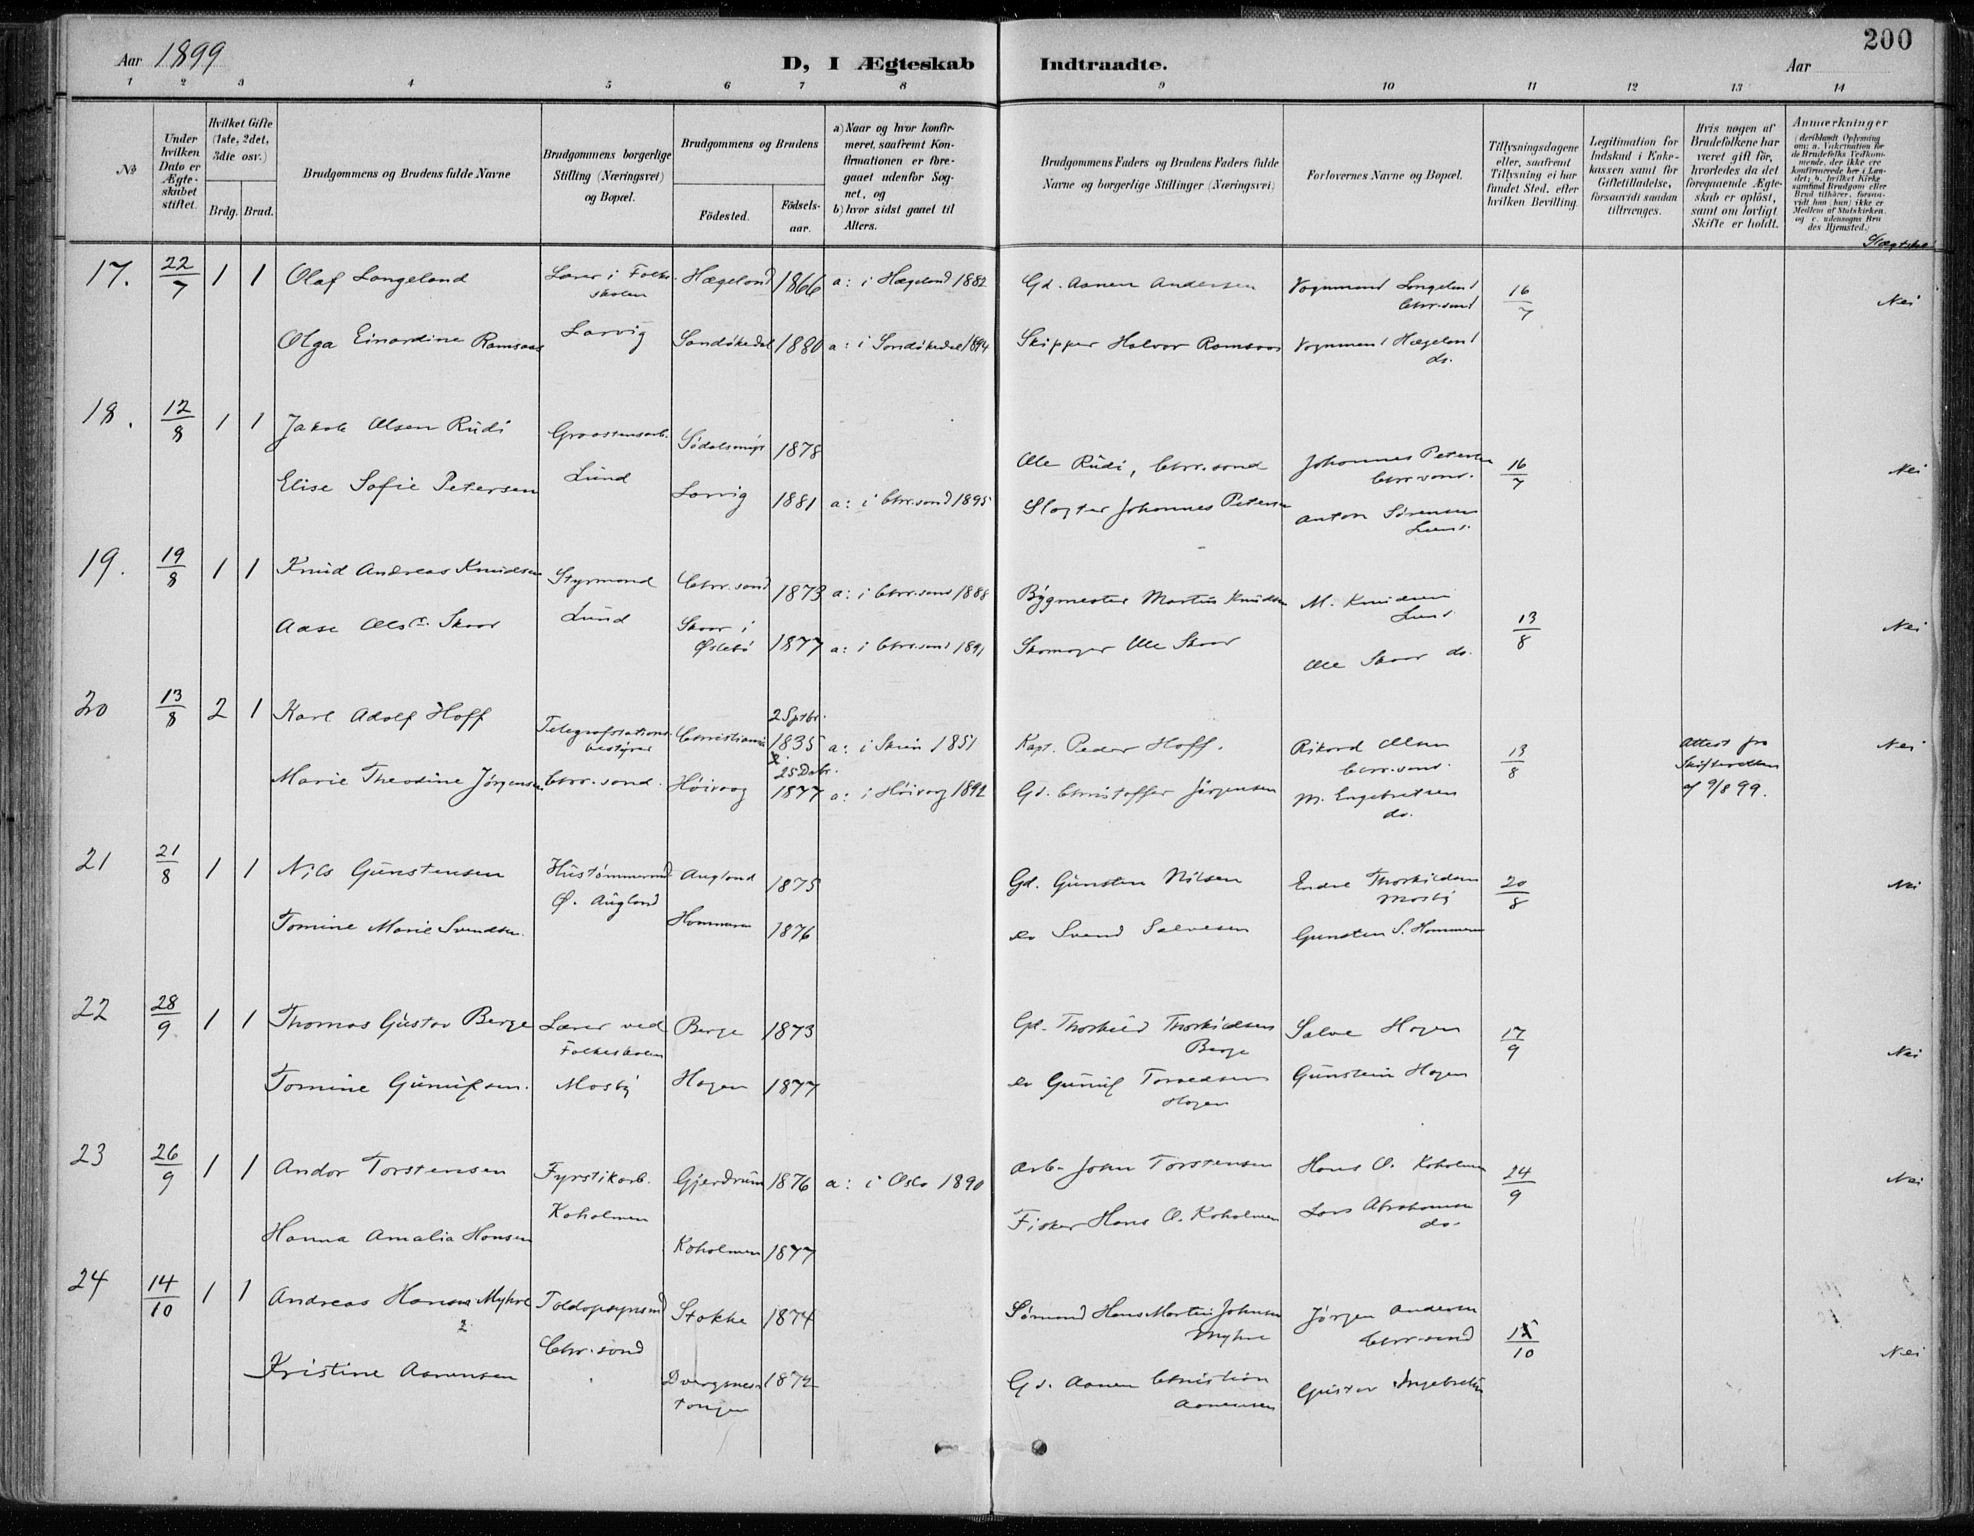 200
Aar 1899
D, I Ægteskab Indtraadte.
Aar
1 2 3 4 5 6 7 8 9 10 11 12 13 14
No
Under hvilken Dato er Ægteskabet stiftet.
Hvilket Gifte (1ste, 2det, 3die osv.)
Brdg. Brud.
Brudgommens og Brudens fulde Navne
Brudgommens borgerlige Stilling (Næringsvei) og Bopæl.
Brudgommens og Brudens
Födested.
Födselsaar.
a) Naar og hvor konfirmeret, saafremt Konfirmationen er foregaaet udenfor Sognet, og
b) hvor sidst gaaet til Alters.
Brudgommens Faders og Brudens Faders fulde Navne og borgerlige Stillinger (Næringsvei)
Forlovernes Navne og Bopæl.
Tillysningsdagene eller, saafremt Tillysning ei har fundet Sted, efter hvilken Bevilling.
Legitimation for Indskud i Enkekassen samt for Giftetilladelse, forsaavidt saadan tiltrænges.
Hvis nogen af Brudefolkene har været gift før, hvorledes da det foregaaende Ægteskab er opløst, samt om lovligt Skifte er holdt.
Anmærkninger (deriblandt Oplysning om; a. Vakcination for de Brudefolks Vedkommende, der ikke ere konfirmerede her i Landet; b. hvilket Kirkesamfund Brudgom eller Brud tilhører, forsaavidt han (hun) ikke er Medlem af Statskirken, og c. udensogns Brudes Hjemsted.)
17. 22/7 1 1 Olaf Langeland Lærer i Folkeskolen Hægeland 1866 a: i Hægeland 1882 Gd. Aanen Andersen Vognmand Langeland Chr.sand 16/7 Nei
Olga Einardine Ramsaas Larvig Sandøkedal 1880 a: i Sandøkedal 1894 Skipper Halvor Ramsaas Vognmand Hægeland do.
18. 12/8 1 1 Jakob Olsen Rudi Graastensarb. 1878 Ole Rudi, Chr.sand Johannes Petersen Chr.sand. 16/7 Nei
Elise Sofie Petersen Lund Larvig 1881 a: i Chr.sand 1895 Slagter Johannes Petersen Anton Sørensen Lund
19. 19/8 1 1 Knud Andreas Knudsen Styrmand Chr.sand 1873 a: i Chr.sand 1888 Bygmester Martius Knudsen M. Knudsen Lund 13/8 Nei
Aase Olsd. Skaar Lund Skaar i Øslebø 1877 a: i Chr.sand 1891 Skomager Ole Skaar Ole Skaar do.
20 13/8 2 1 Karl Adolf Hoff Telegrafstationsbestyrer Christiania 2 Sptbr. 1835 a: i Skien 1851 Kapt. Peder Hoff. Rikard Olsen Chr.sand. 13/8 Attest fra Skifteretten af 9/8 99. Nei
Marie Theodine Jørgensen Chr.sand. Høivaag 25 Debr. 1877 a: i Høivaag 1892 Gd. Christoffer Jørgensen M. Engebretsen do.
21 21/8 1 1 Nils Gunstensen Hustømmermd Augland 1875 Gd. Gunsten Nilsen Endre Thorkildsen Mosby 20/8 Nei
Tomine Marie Svendsen. Ø. Augland Hommeren 1876 do Svend Salvesen Gunsten S. Hommeren
22 28/9 1 1 Thomas Gustav Berge Lærer ved Folkeskolen Berge 1873 Gd. Thorkild Thorkildsen Berge Salve Hagen 17/9 Nei
Tomine Gunulfsen. Mosby Hagen 1877 do Gunulf Hagen Gunstein Hagen
23 26/9 1 1 Andor Torstensen Fyrstikarb. Gjerdrum 1876 a: i Oslo 1890 Arb. John Torstensen Hans O. Koholmen 24/9 Nei
Hanna Amalia Hansen Koholmen Koholmen 1877 Fisker Hans O. Koholmen Lars Abrahamsen do.
24 14/10 1 1 Andreas Hansen Myhre Toldopsynsmd Stokke 1874 Sømand Hans Martin Johnsen Myhre Jørgen Andersen Chr.sand 15/10 Nei
Kristine Aanensen Chr.sand Dvergsnestangen 1872 Gd. Aanen Christian Aanensen Gustav Ingebretsen